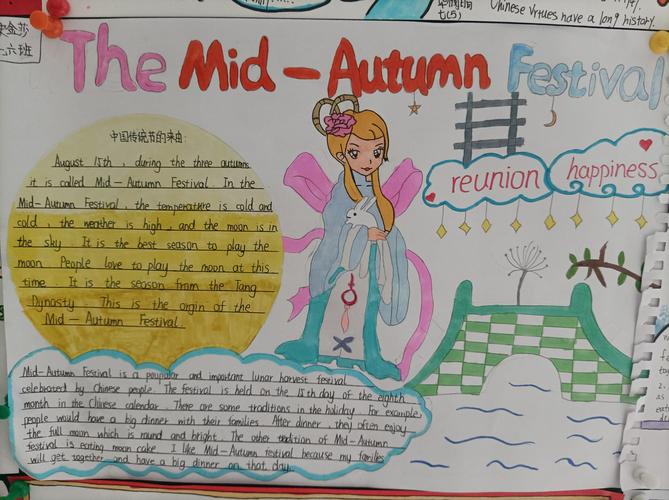 七(5)
Chinese Virtues have a long history.
六班
The Mid-Autumn Festival
中国传统节的来由:
August 15th, during the three autumns
it is called Mid-Autumn Festival. In the
Mid-Autumn Festival, the temperature is cold and
cold the weather is high, and the moon is in
the sky. It is the best season to play the
moon. People love to play the moon at this
time. It is the season from the Tang
Dynasty. This is the orgin of the
Mid-Autumn Festival.
reunion
happiness
Mid-Autumn Festival is a and important lunar harvest festival
celebrated by Chinese people. The festival is held on the 15th day of the eighth
month in the Chinese calendar. There are some traditions in the holiday. For example,
people would have a big dinner with their families. After dinner, they often enjoy
the full moon which is round and bright. The other tradition of Mid-Autumn
festival is eating moon cake. I like Mid-Autumn festival because my families
will get together and have a big dinner on that day.